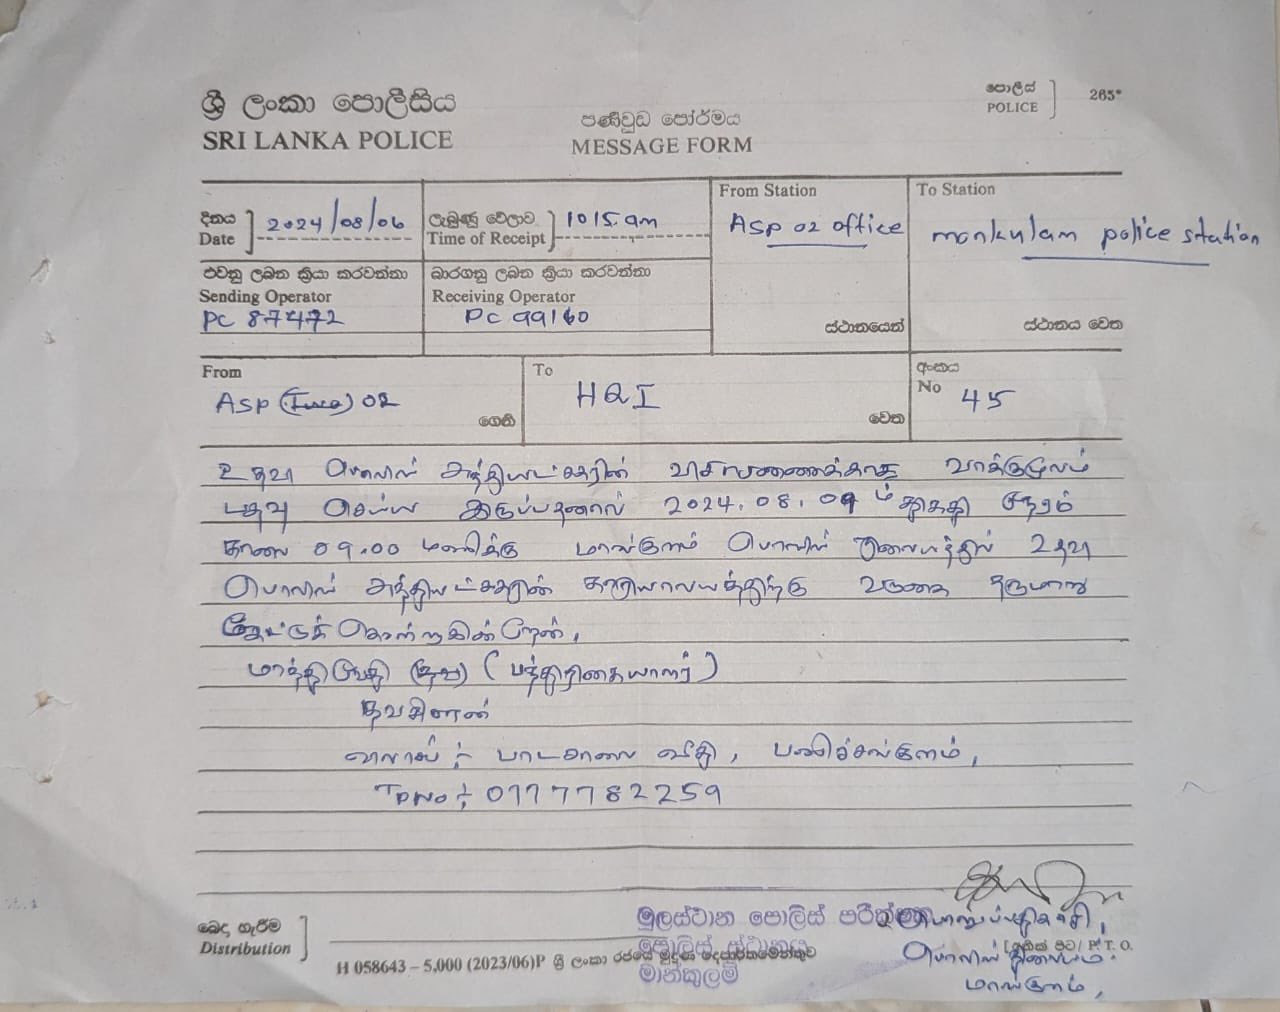 ශ්‍රී ලංකා පොලීසිය
SRI LANKA POLICE
පණිවුඩ පෝර්මය
MESSAGE FORM
පොලිස්
POLICE
265
දිනය
Date
2024/08/06
ලැබුණු වේලාව
Time of Receipt
1015.am
From Station
ASP 02 office
ස්ථානයෙන්
To Station
monkulam police station
ස්ථානය වෙත
එවනු ලබන ක්‍රියා කරවන්නා
Sending Operator
PC 87472
බාරගනු ලබන ක්‍රියා කරවන්නා
Receiving Operator
PC 99160
From
ASP 02
ගෙන්
To
HQI
වෙත
අංකය
No 45
உதவி பொலிஸ் அத்தியட்சகரின் விசாரணைக்காக வாக்குமூலம்
பதிவு செய்ய இருப்பதனால் 2024.08.09 ம் திகதி
காலை 09.00 மணிக்கு மாங்குளம் பொலிஸ் நிலையத்தில் உதவி
பொலிஸ் அத்தியட்சகரின் காரியாலயத்திற்கு வருகை தருமாறு
கேட்டுக் கொள்ளுகின்றேன்,
(பத்திரிகையாளர்)
தவசீலன்
விலாசம் :- பாடசாலை வீதி, பனிச்சங்குளம்,
TPNo :- 0777782259
බෙදා හැරීම
Distribution
මූලස්ථාන පොලිස් පරීක්ෂක
පොලිස් ස්ථානය
මාන්කුලම්
பொறுப்பதிகாரி,
பொலிஸ் நிலையம்
மாங்குளம்,
[අනික් පිට/ P. T. O.
H 058643 – 5,000 (2023/06)P ශ්‍රී ලංකා රජයේ මුද්‍රණ දෙපාර්තමේන්තුව